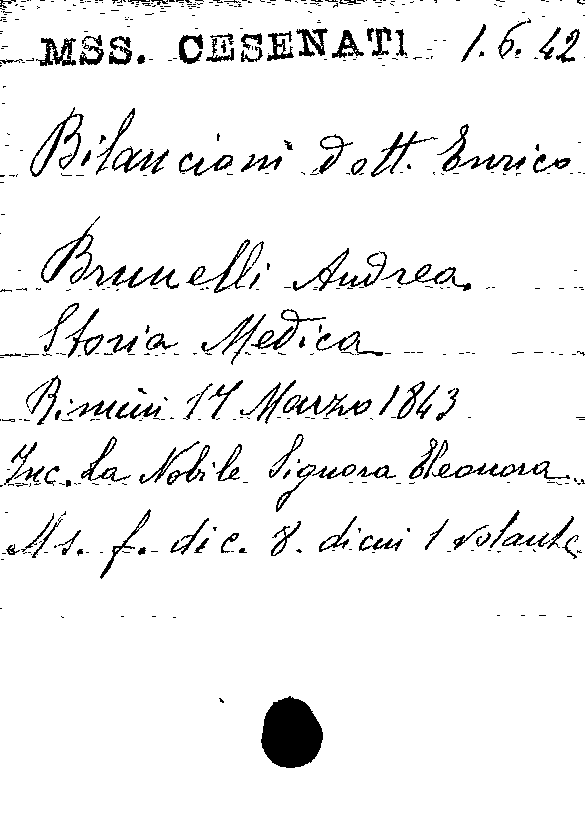 MSS. CESENATI 1.6.42
Bilancioni Dott. Enrico
Brunelli Andrea.
Storia Medica
Rimini 17 Marzo 1843
Inc. La Nobile Signora Eleonora
Ms. f. di c. 8. dicui 1 volante